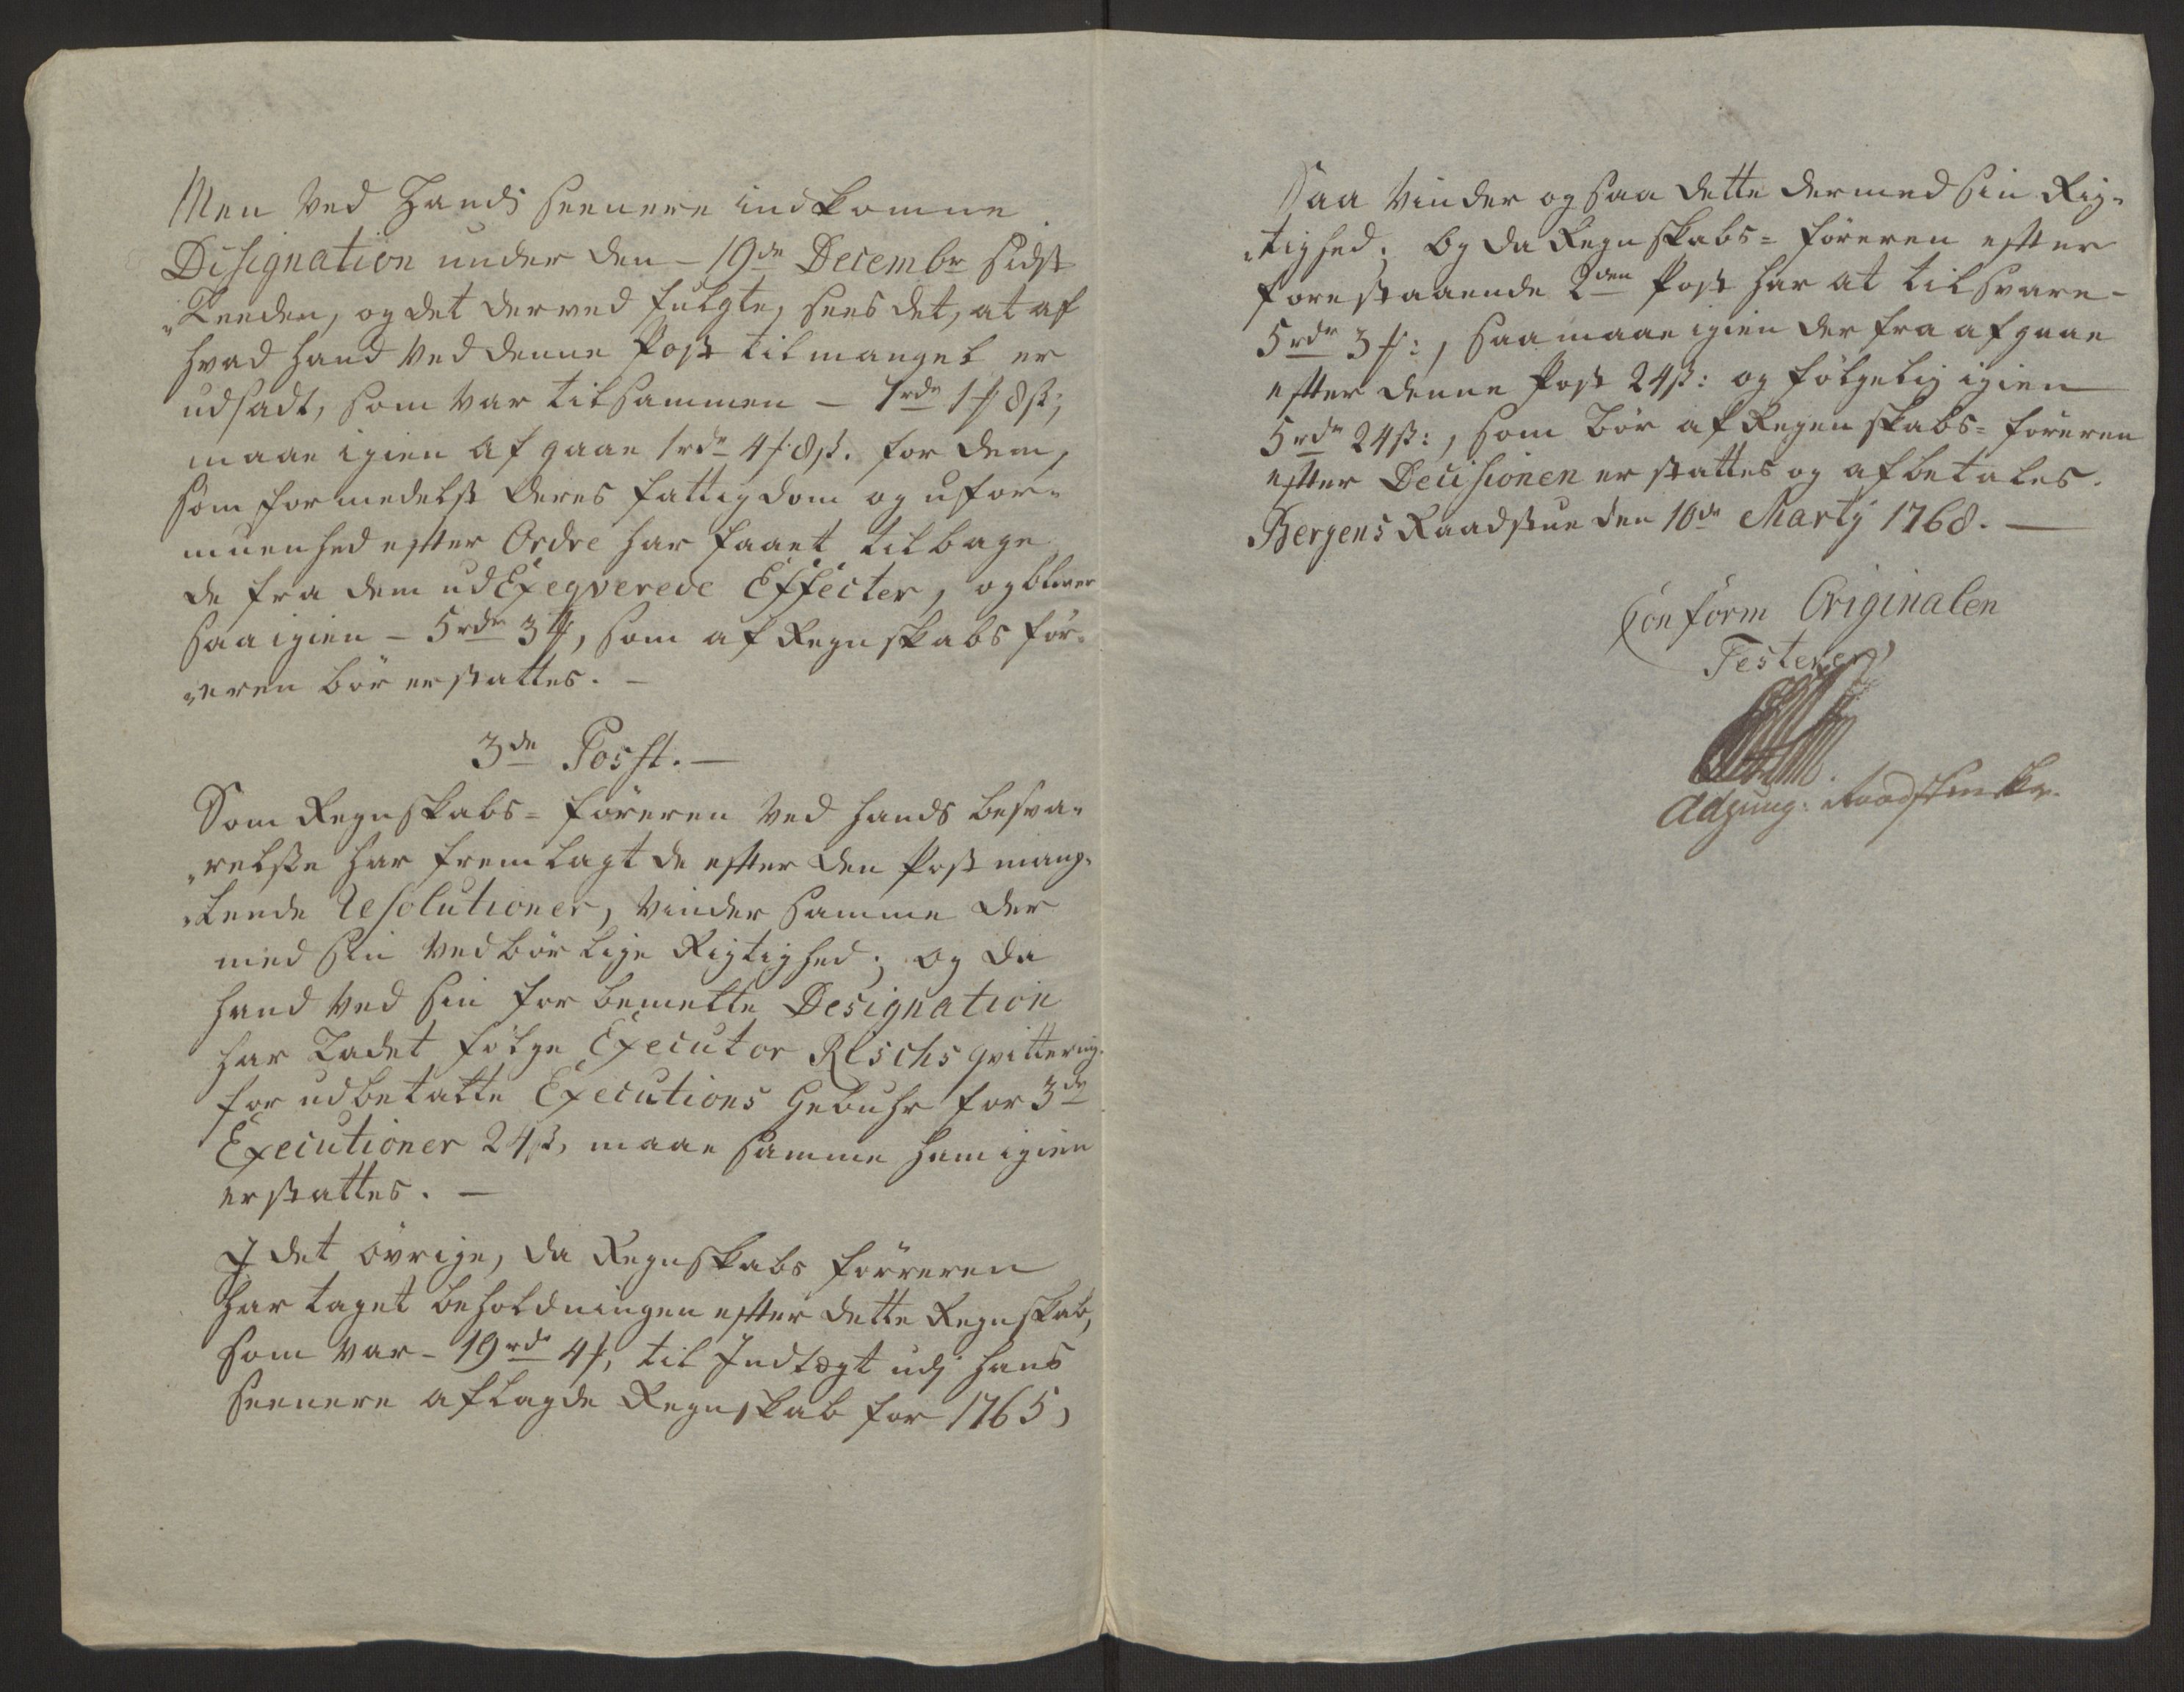 Men ved Hands seenere indkomne
Designation under den - 19de Decembr sidst
„Leeden, og det derved fulgte, sees det, at af
hvad hand ved denne Post til mangel er
udsadt, som var tilsammen - 7rdr 1 ʄ 8ß;
maae igien afgaae 1rdr 4 ʄ 8ß. for dem,
som formedelst deres fattigdom og ufor-
muenhed efter Ordre har faaet tilbage
de fra dem udExeqverede Effecter, og bliver
saa igien - 5rdr 3 ʄ, som af Regnskabs för-
„eren bör erstattes. -
3de Posst. -
Som Regnskabs-föreren ved hands besva-
„relsse har fremlagt de efter den Post mang-
„lende Resolutioner, vinder samme der
med sin vedbörlige Rigtighed; og da
hand ved sin forbemelte Designation
har Ladet fölge Executor Rischs qvittering
for udbetalte Executions Gebuhr for 3de
Executioner 24ß, maae samme ham igien
erstattes. -
I det övrige, da Regnskabs förreren
har taget beholdningen efter dette Regnskab,
som var - 19rdr 4 ʄ, til Indtægt udj hans
seenere aflagde Regnskab for 1765,
Saa vinder ogsaa dette dermed sin Rig-
„tighed; Og da Regnskabs-föreren efter
forestaaende 2den Post har at tilsvare -
5rdr 3 ʄ:, saa maae igien der fra afgaae
efter denne Post 24ß: og fölgelig igien
5rdr 24ß:, som bör af Regenskabs-föreren
efter Decisionen erstattes og afbetales.
Bergens Raadstue den 10de Martij 1768. -
Conform Originalen
Testerer
Adjung: Raadstueskr.